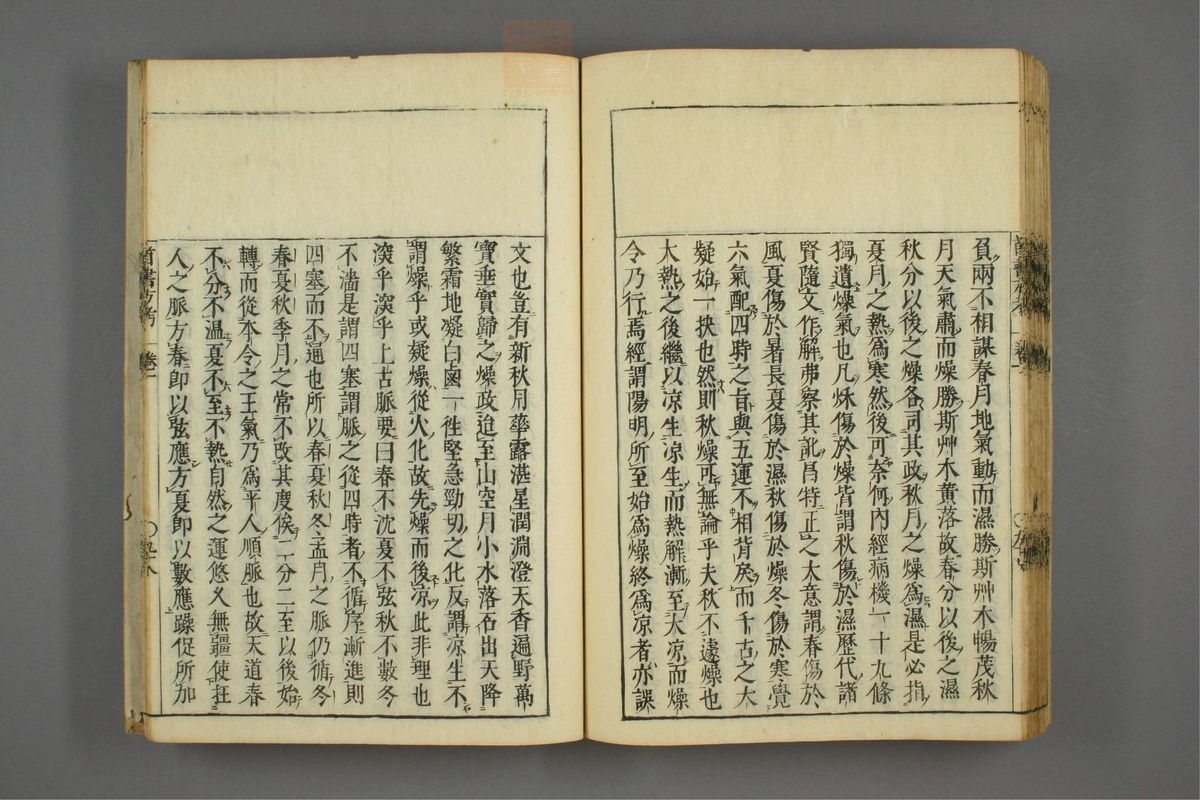 負兩不相謀春月地氣動而濕勝斯艸木暢茂秋
月天氣肅而燥勝斯艸木黄落故春分以後之濕
秋分以後之燥各司其政秋月之燥爲濕是必指
夏月之熱爲寒然後可奈何内經病機一十九條
獨遺燥氣也凡秌傷於燥皆謂秋傷於濕歷代諸
賢隨文作解弗察其訛昌特正之大意謂春傷於
風夏傷於暑長夏傷於濕秋傷於燥冬傷於寒覺
六氣配四時之旨與五運不相背矣而千古之大
疑始一抉也然則秋燥可無論乎夫秋不遽燥也
大熱之後繼以凉生凉生而熱解漸至大凉而燥
令乃行焉經謂陽明所至始爲燥終爲凉者亦誤
文也豈有新秋月華露湛星潤淵澄天香遍野萬
寶垂實歸之燥政迨至山空月小水落石出天降
繁霜地凝白鹵一徃堅急勁切之化反謂凉生不
謂燥乎或疑燥從火化故先燥而後凉此非理也
深乎深乎上古脉要曰春不沈夏不弦秋不數冬
不濇是謂四塞謂脉之從四時者不循序漸進則
四塞而不通也所以春夏秋冬孟月之脉仍循冬
春夏秋季月之常不改其度俟二分二至以後始
轉而從本令之王氣乃爲平人順脉也故天道春
不分不温夏不至不熱自然之運悠久無疆使在
人之脉方春即以弦應方夏即以數應躁促所加